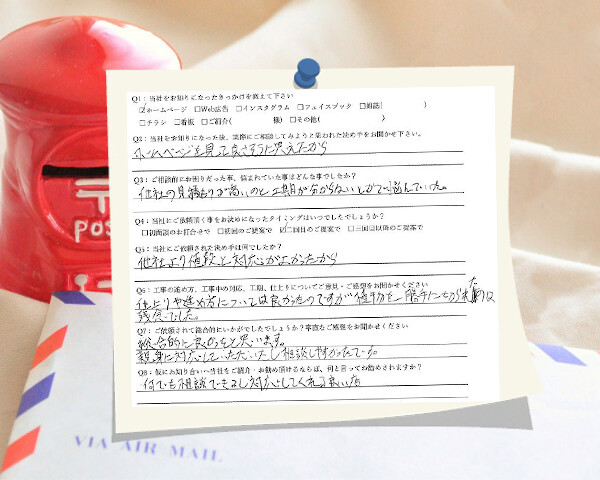 Q1：当社をお知りになったきっかけを教えて下さい
☑ホームページ □Web広告 □インスタグラム □フェイスブック □雑誌( )
□チラシ □看板 □ご紹介( 様) □その他( )
Q2：当社をお知りになった後、実際にご相談してみようと思われた決め手をお聞かせ下さい。
ホームページを見て良さそうに見えたから
Q3：ご相談前にお困りだった事、悩まれていた事はどんな事でしたか？
他社の見積もりが高いのと工期が分からないとかで悩んでいた。
Q4：当社にご依頼頂く事をお決めになったタイミングはいつでしたでしょうか？
□初面談のお打合せで □初回のご提案で ☑二回目のご提案で □三回目以降のご提案で
Q5：当社にご依頼された決め手は何でしたか？
他社より値段と対応がよかったから
Q6：工事の進め方、工事中の対応、工期、仕上りについてご意見・ご感想をお聞かせください
仕上りや進め方については良かったのですが植木を勝手に切られたのは
残念でした。
Q7：ご依頼されて総合的にいかがでしたでしょうか？率直なご感想をお聞かせください
総合的に良かったと思います。
親身に対応していただいたし相談しやすかったです。
Q8：仮にお知り合いへ当社をご紹介・お勧め頂けるならば、何と言ってお勧めされますか？
何でも相談できるし対応してくれる良い
POS
VIA AIR MAIL